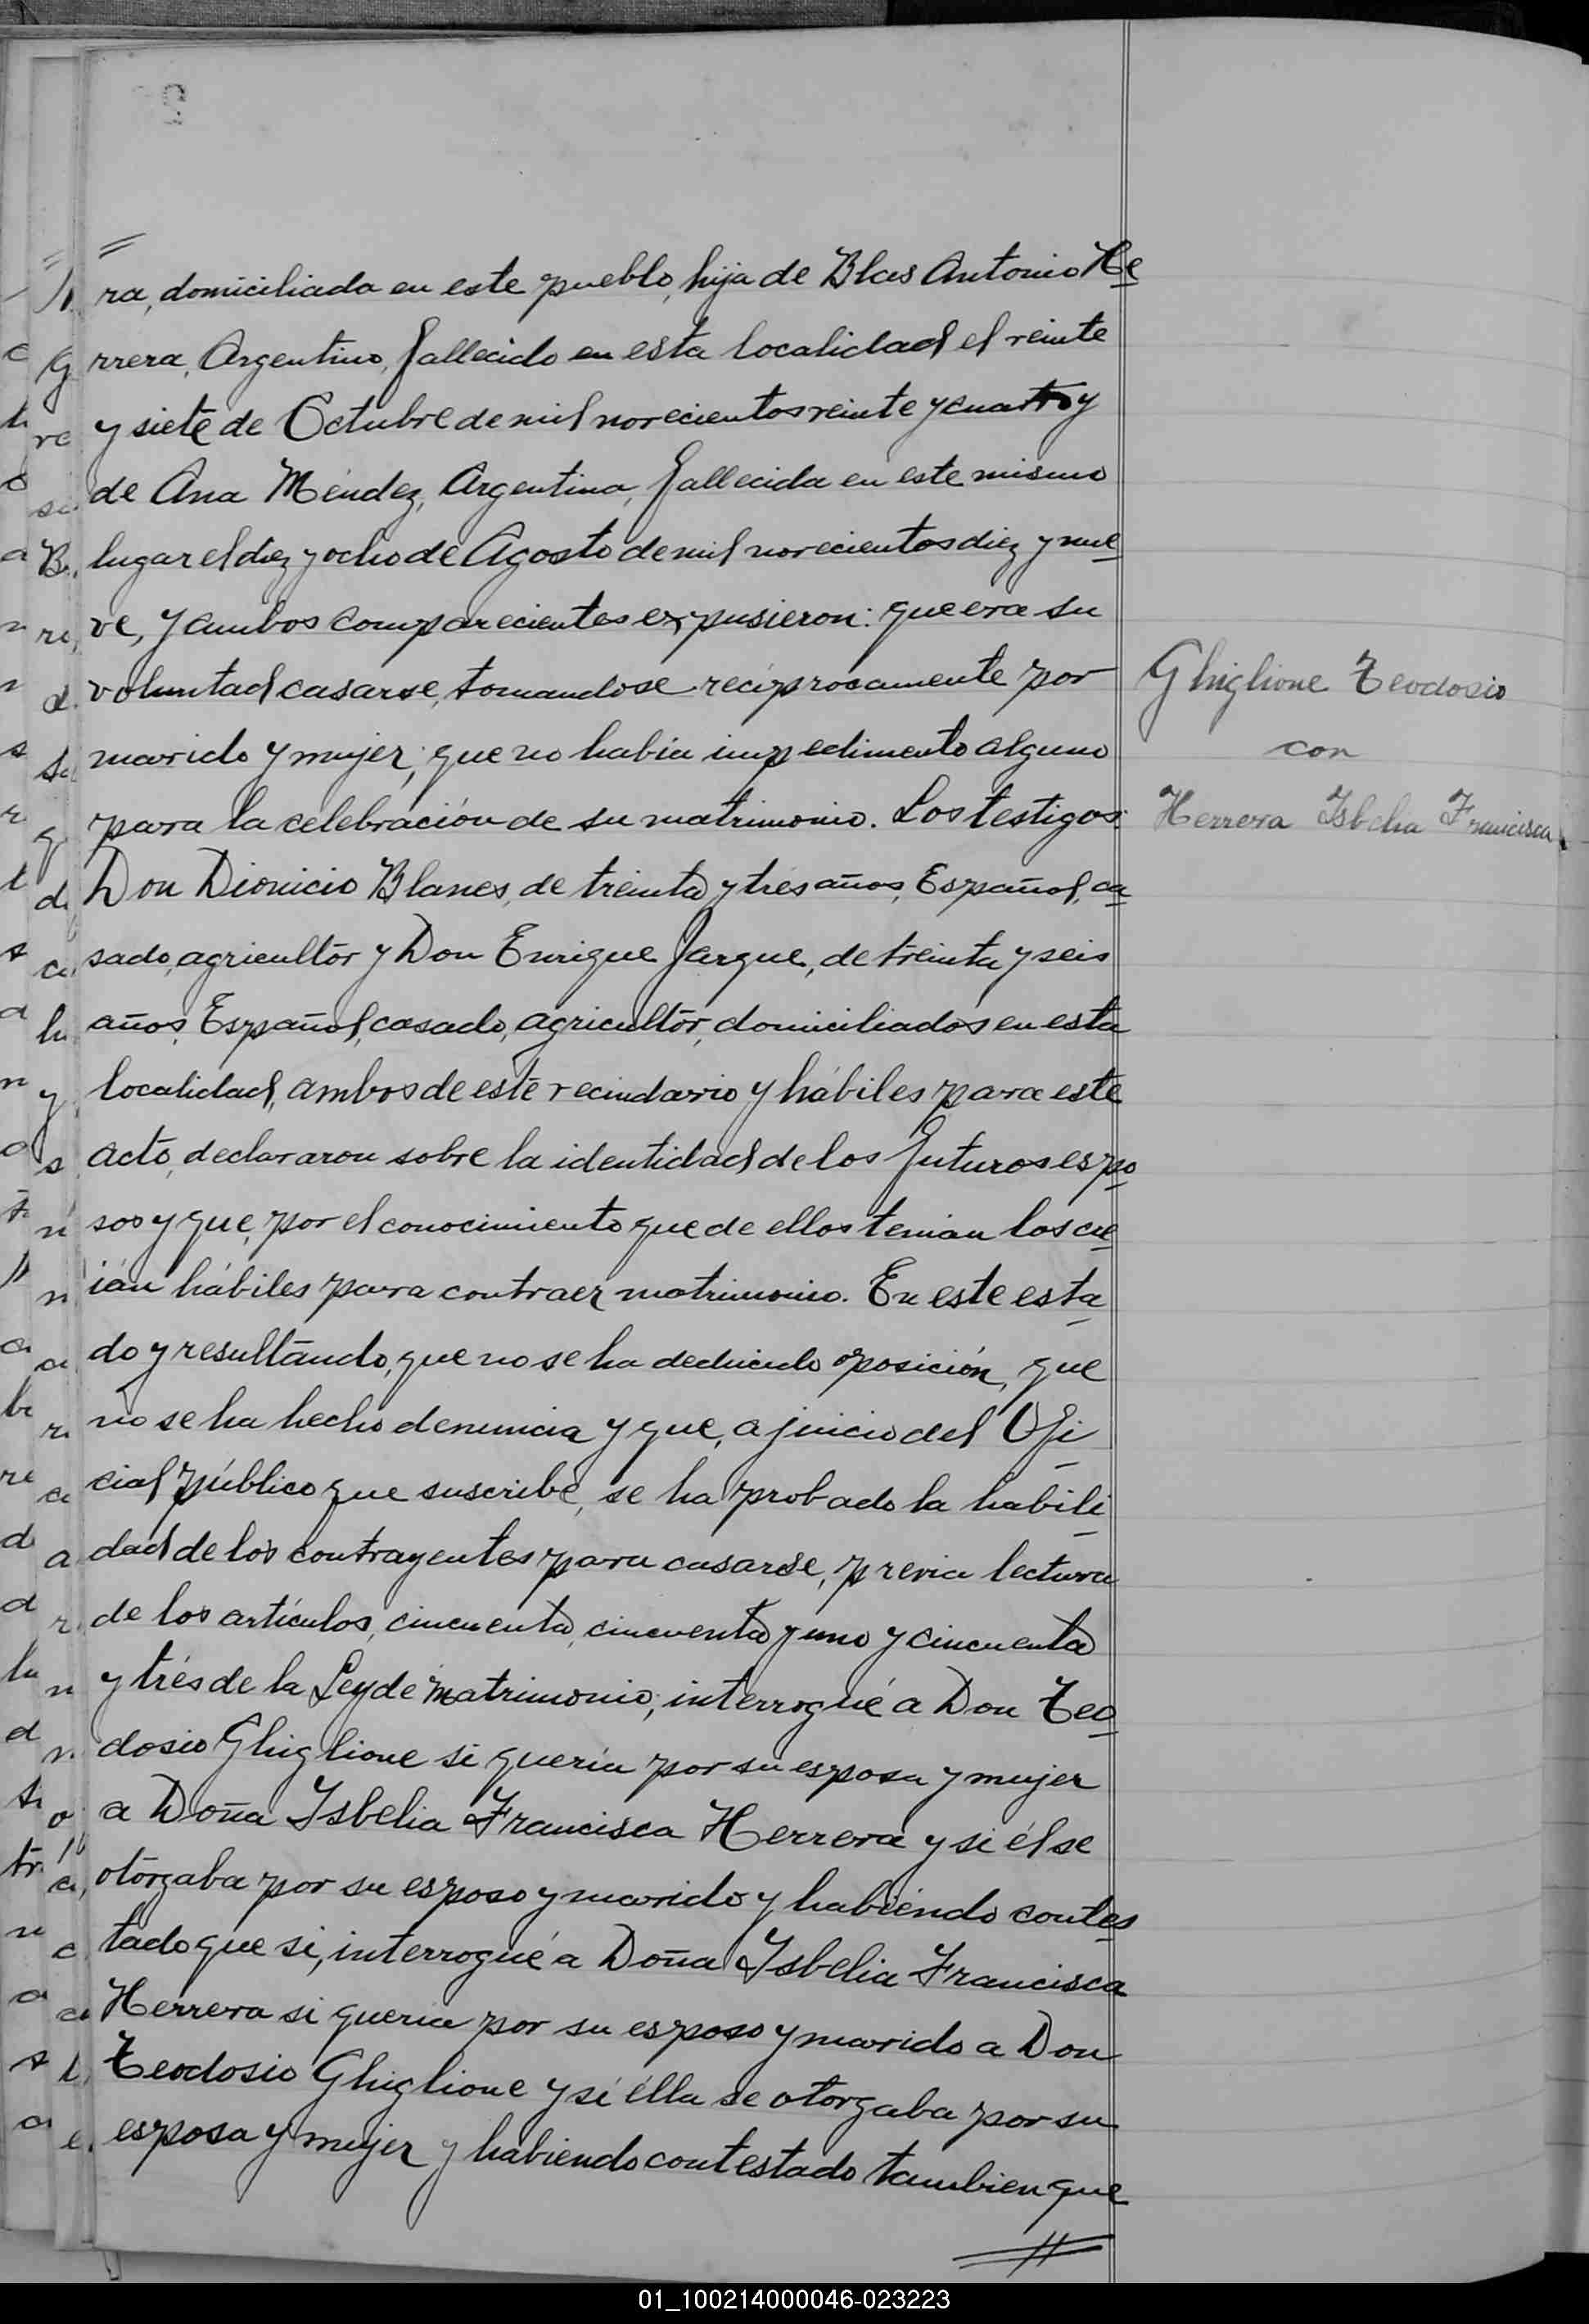 ra, domiciliada en este pueblo, hija de Blas Antonio He
rrera, Argentino, fallecido en esta localidad el veinte
y siete de Octubre de mil novecientos veinte y cuatro y
de Ana Méndez, Argentina, fallecida en este mismo
lugar el diez y ocho de Agosto de mil novecientos diez y nue
ve, y ambos comparecientes expusieron: que era su
voluntad casarse, tomandose reciprocamente por
marido y mujer; que no habia impedimento alguno
para la celebración de su matrimonio. Los testigos:
Don Dionicio Blanes, de treinta y tres años, Español, ca
sado, agricultor y Don Enrique Jarque, de treinta y seis
años, Español, casado, agricultor, domiciliados en esta
localidad, ambos de este vecindario y hábiles para este
acto, declararon sobre la identidad de los futuros espo
sos y que, por el conocimiento que de ellos tenian los cre
ián hábiles para contraer matrimonio. En este esta
do y resultando, que no se ha deducido oposición, que
no se ha hecho denuncia y que, a juicio del Ofi
cial público que suscribe, se ha probado la habili
dad de los contrayentes para casarse, previa lectura
de los artículos, cincuenta, cincuenta y uno y cincuenta
y trés de la Ley de Matrimonio; interrogué a Don Teo
dosio Ghiglione si queria por su esposa y mujer
a Doña Isbelia Francisca Herrera y si él se
otorgaba por su esposo y marido y habiendo contes
tado que si, interrogué a Doña Isbelia Francisca
Herrera si queria por su esposo y marido a Don
Teodosio Ghiglione y si élla se otorgaba por su
esposa y mujer y habiendo contestado tambien que
Ghiglione Teodosio
con
Herrera Isbelia Francisca
01_100214000046-023223